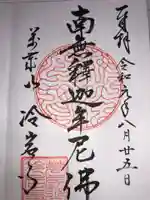 奉拝 令和元年八月廿五日
南無釋迦牟尼佛
萬亀山 冷岩寺